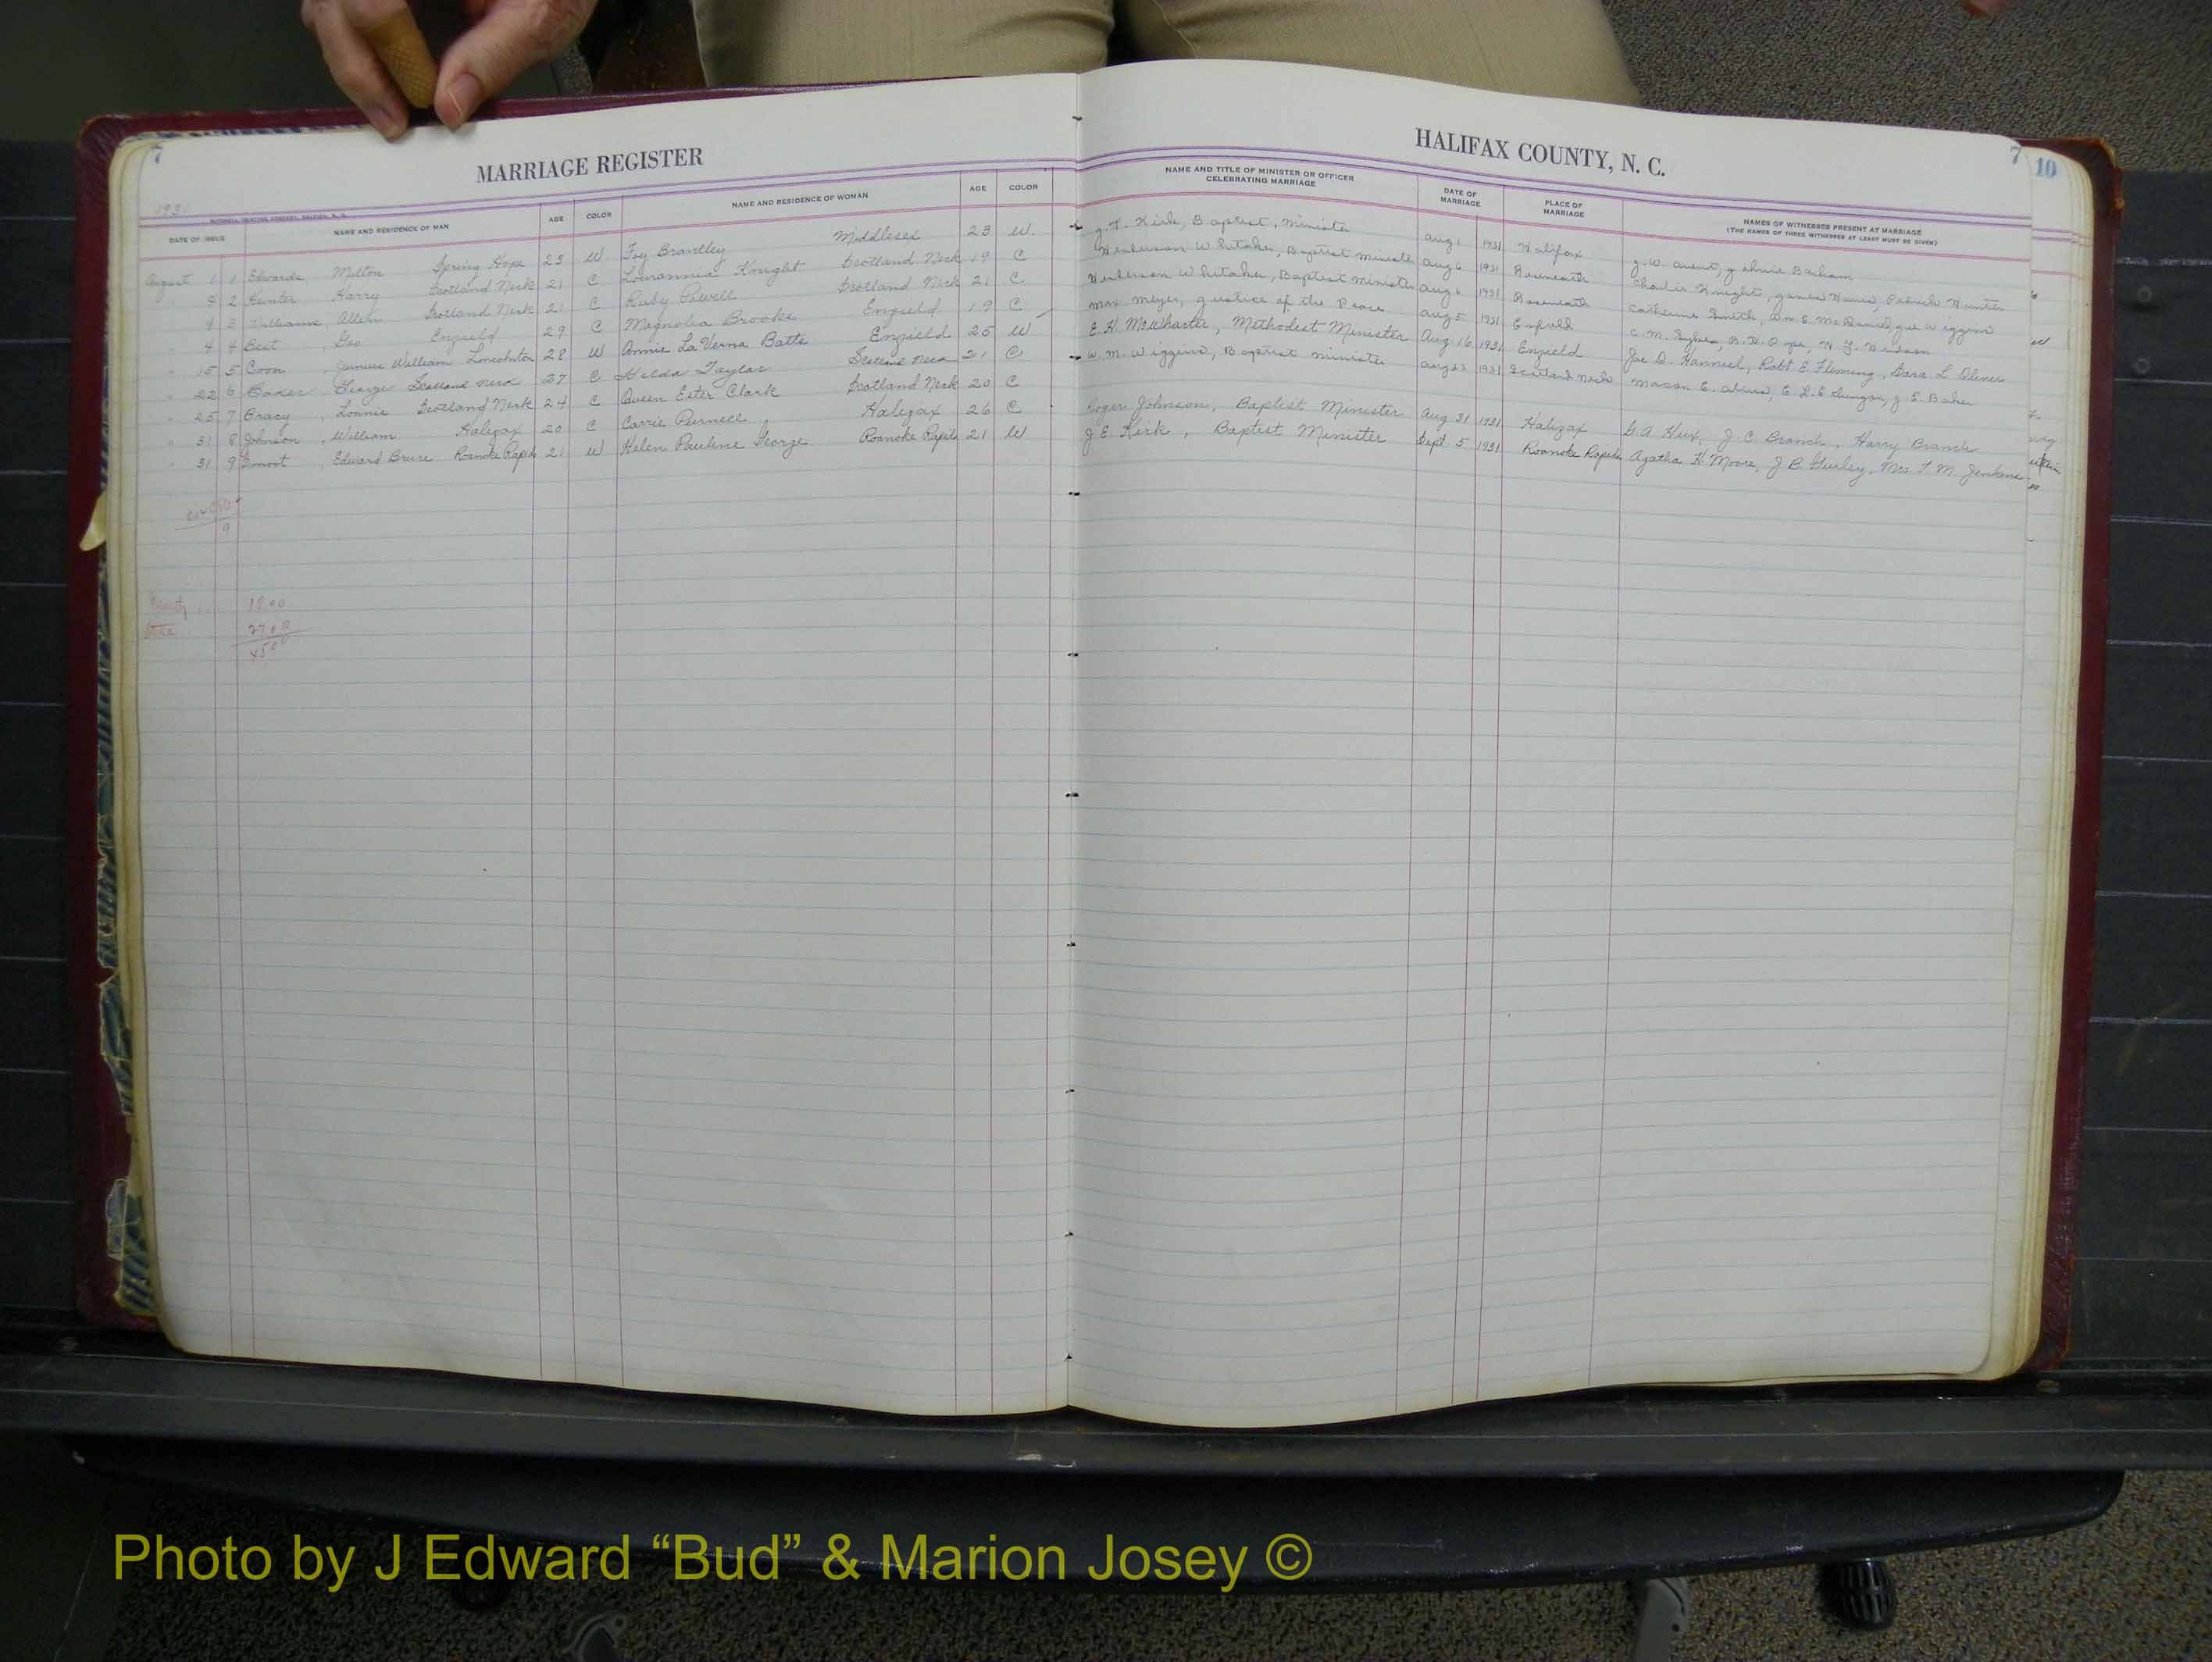 7
MARRIAGE REGISTER
1931
DATE OF ISSUE
NAME AND RESIDENCE OF MAN
AGE
COLOR
NAME AND RESIDENCE OF WOMAN
AGE
COLOR
August 1 1 Edwards Milton Spring Hope 23 W Foy Brantley Middlesex 23 W.
4 2 Hunter, Harry Scotland Neck 21 C Louvannia Knight Scotland Neck 19 C
4 3 Williams, Allen Scotland Neck 21 C Ruby Powell Scotland Neck 21 C.
" 4 4 Best, Geo Enfield 29 C Magnolia Brooks Enfield 19 C
" 15 5 Coon, James William Lincolnton 28 W Annie La Verna Batts Enfield 25 W
" 22 6 Baker George Scotland Neck 27 C Hilda Taylor Scotland Neck 21 C
" 25 7 Bracy, Lonnie Scotland Neck 24 C Queen Ester Clark Scotland Neck 20 C
" 31 8 Johnson, William Halifax 20 C Carrie Purnell Halifax 26 C
" 31 9 Edward Bruce Roanoke Rapids 21 W Helen Pauline George Roanoke Rapids 21 W
9
County 18.00
State 27.00
45.00
HALIFAX COUNTY, N. C.
7
10
NAME AND TITLE OF MINISTER OR OFFICER
CELEBRATING MARRIAGE
DATE OF
MARRIAGE
PLACE OF
MARRIAGE
NAMES OF WITNESSES PRESENT AT MARRIAGE
(THE NAMES OF THREE WITNESSES AT LEAST MUST BE GIVEN)
Kirk, Baptist, Minister Aug 1 1931 Halifax J. W. Avent, Barham
Henderson Whitaker, Baptist Minister Aug 6 1931 Roseneath Charlie Knight, James Hunter
Henderson Whitaker, Baptist Minister Aug 6 1931 Roseneath Catherine Smith, Wm. E. McDaniel, Joe Wiggins
Max Meyer, Justice of the Peace Aug 5 1931 Enfield C. M. B. H. Pope,
E. H. McWhorter, Methodist Minister Aug 16 1931 Enfield Joe D. Robt E. Fleming, Sara L. Oliver
W. M. Wiggins, Baptist Minister Aug 23 1931 Scotland Neck Mason E. J. E. Baker
Roger Johnson, Baptist Minister Aug 31 1931 Halifax J. C. Branch, Harry Branch
J E. Kirk, Baptist Minister Sept. 5 1931 Roanoke Rapids Agatha H. Moore, J B. Gurley, Mrs. T. M. Jenkins
Photo by J Edward “Bud” & Marion Josey ©